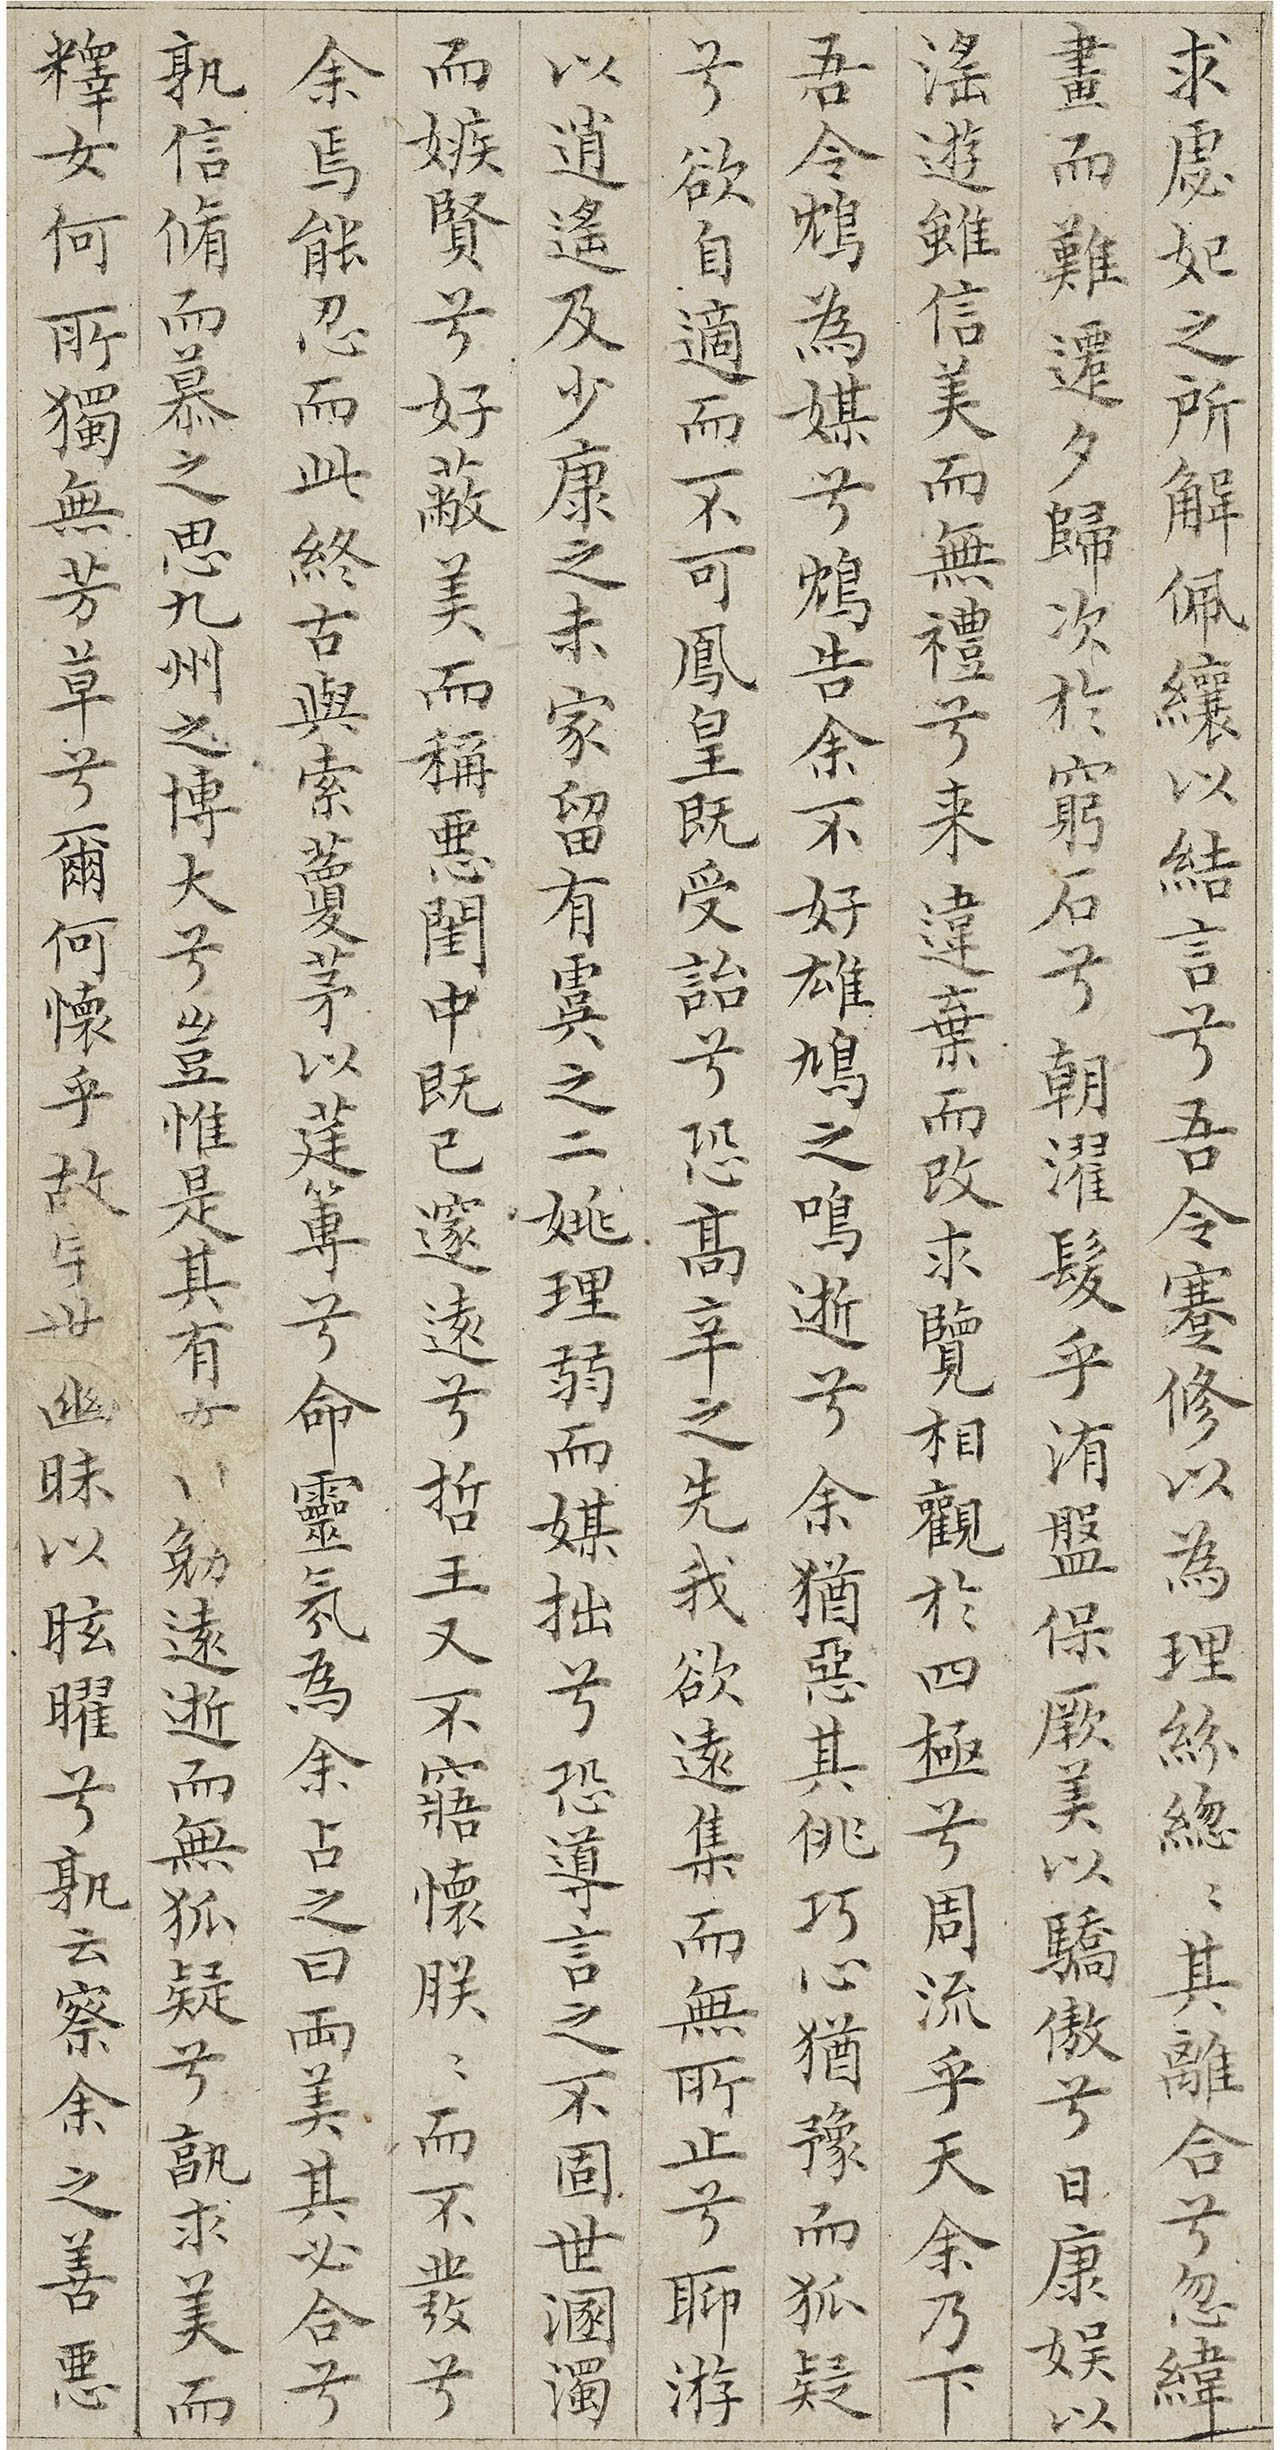 求虙妃之所解佩纕以結言兮吾令蹇修以為理紛緫〻其離合兮忽緯
畫而難遷夕歸次於窮石兮朝濯髮乎洧盤保厥美以驕傲兮日康娱以
滛遊雖信美而無禮兮来違棄而改求覽相觀於四極兮周流乎天余乃下
吾令鴆為媒兮鴆告余不好雄鳩之鳴逝兮余猶惡其佻巧心猶豫而狐疑
兮欲自適而不可鳳皇既受詒兮恐髙辛之先我欲遠集而無所止兮聊游
以逍遙及少康之未家留有虞之二姚理弱而媒拙兮恐導言之不固世溷濁
而嫉賢兮好蔽美而稱惡閨中既已邃遠兮哲王又不寤懷朕〻而不發兮
余焉能忍而此終古與索藑茅以莛篿兮命靈氛為余占之曰兩美其必合兮
孰信脩而慕之思九州之博大兮豈惟是其有女勉遠逝而無狐疑兮孰求美而
釋女何所獨無芳草兮爾何懷乎故宇世幽昧以眩曜兮孰云察余之善惡